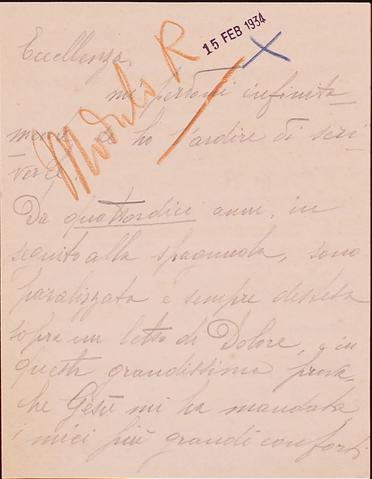 15 FEB 1934
Modulo R
X
Eccellenza,
mi perdoni infinita
mente, se ho l'ardire di scri
verLe.
Da quattordici anni, in
seguito alla spagnuola, sono
paralizzata e sempre
sopra un letto di Dolore, in
questa grandissima prova,
che Gesù mi ha mandata
i miei più grandi conforti